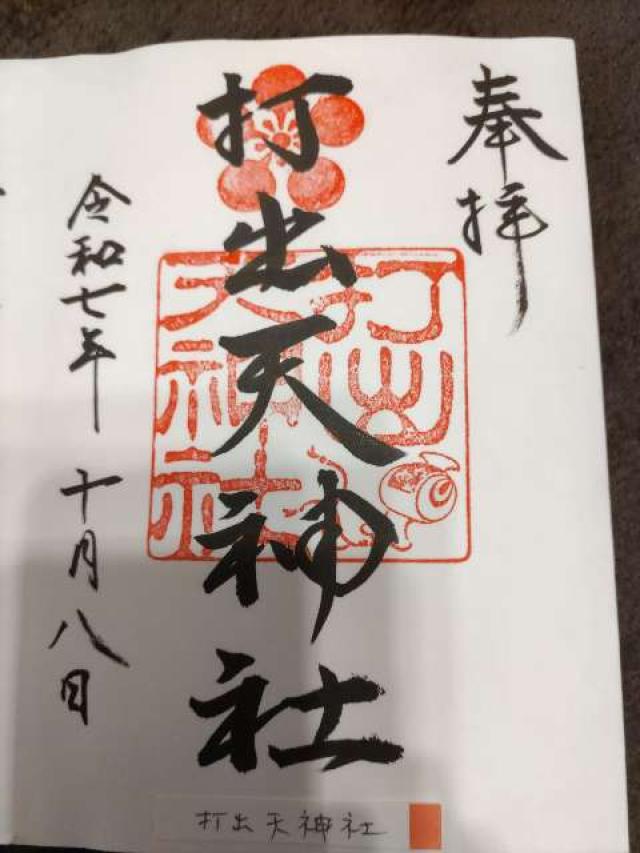 奉拝
打出天神社
打出
天神社
令和七年 十月八日
打出天神社